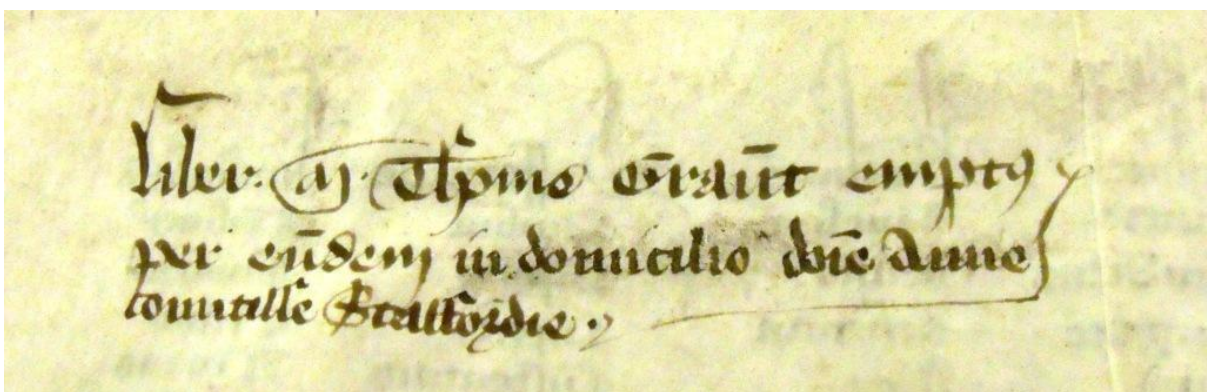 liber. M Thome Graunt emptus
per eundem in domicilio dñe Anne
comitisse Staffordie.